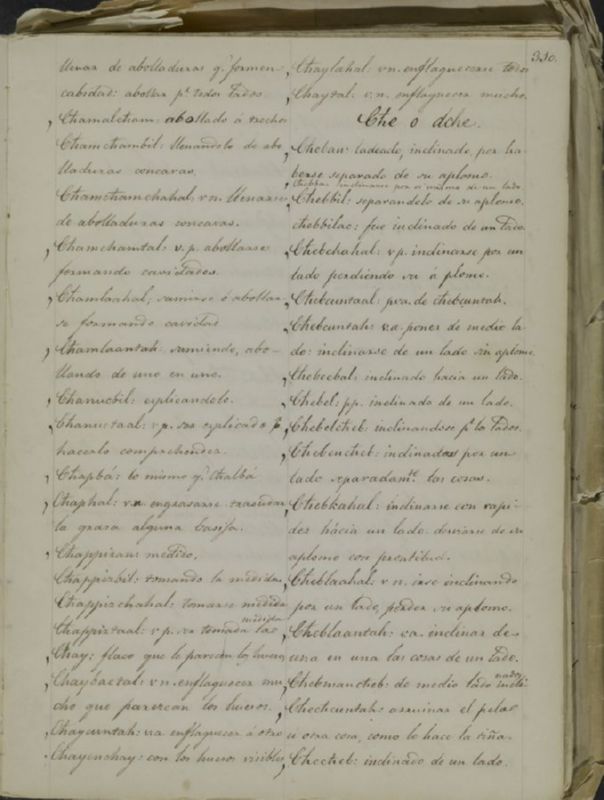 330.
llenar de abolladuras q.e formen
cabidad: abollar p.r todos lados.
Chamalcham: abollado á trechos
Chamchambil: llenandolo de abo
lladuras concavas.
Chamchamchahal, v n. llenarse
de abolladuras concavas.
Chamchamtal: v. p. abollarse
formando cavidades.
Chamlaahal, sumirse ó abollar
se formando cavidad
Chamlaantah: sumiendo, abo-
llando de uno en uno.
Chanucbil: esplicandolo.
Chanuctaal: v p. ser esplicado p.
hacerlo comprehender.
Chapbá: lo mismo q.e chalbá
Chaphal: v n engrasarse trasudar
la grasa alguna basija.
Chappizan: medido.
Chappizbil: tomando la medida,
Chappizchahal: tomarse medida
Chappiztaal: v p. ser tomada las
medida
Chay: flaco que le parecen los huesos
Chaybaczal: v n. enflaquecer mu
cho que parezcan los huesos.
Chaycuntah: v a enflaquecer á otro
Chayenchay: con los huesos visibles,
Chaylahal: v n. enflaquecerse todos
Chaytal: v. n. enflaquecer mucho.
Che o dche.
Chelan: ladeado, inclinado por ha
berse separado de su aplomo.
inclinarse por si misma de un lado
Chebbil: separandolo de su aplomo.
chebbilac: fue inclinado de un lado.
Chebchahal: v p. inclinarse por un
lado perdiendo su á plomo.
Chebcuntaal: pva. de chebcuntah.
Chebcuntah: v a. poner de medio la
do: inclinarse de un lado sin aplomo.
Chebecbal: inclinado hacia un lado.
Chebel: pp. inclinado de un lado.
Chebelcheb: inclinandose p.r los lados.
Chebencheb: inclinados por un
lado separadam.te las cosas.
Chebkahal: inclinarse con rapi
dez hácia un lado: desviarse de su
aplomo con prontitud.
Cheblaahal: v n. irse inclinando
por un lado, perder su aplomo.
Cheblaantah: v a. inclinar de
una en una las cosas de un lado.
nado,
Chebmancheb: de medio lado incli
Chechcuntah: arruinar el pelo
u otra cosa, como lo hace la tiña.
Checcheb: inclinado de un lado.